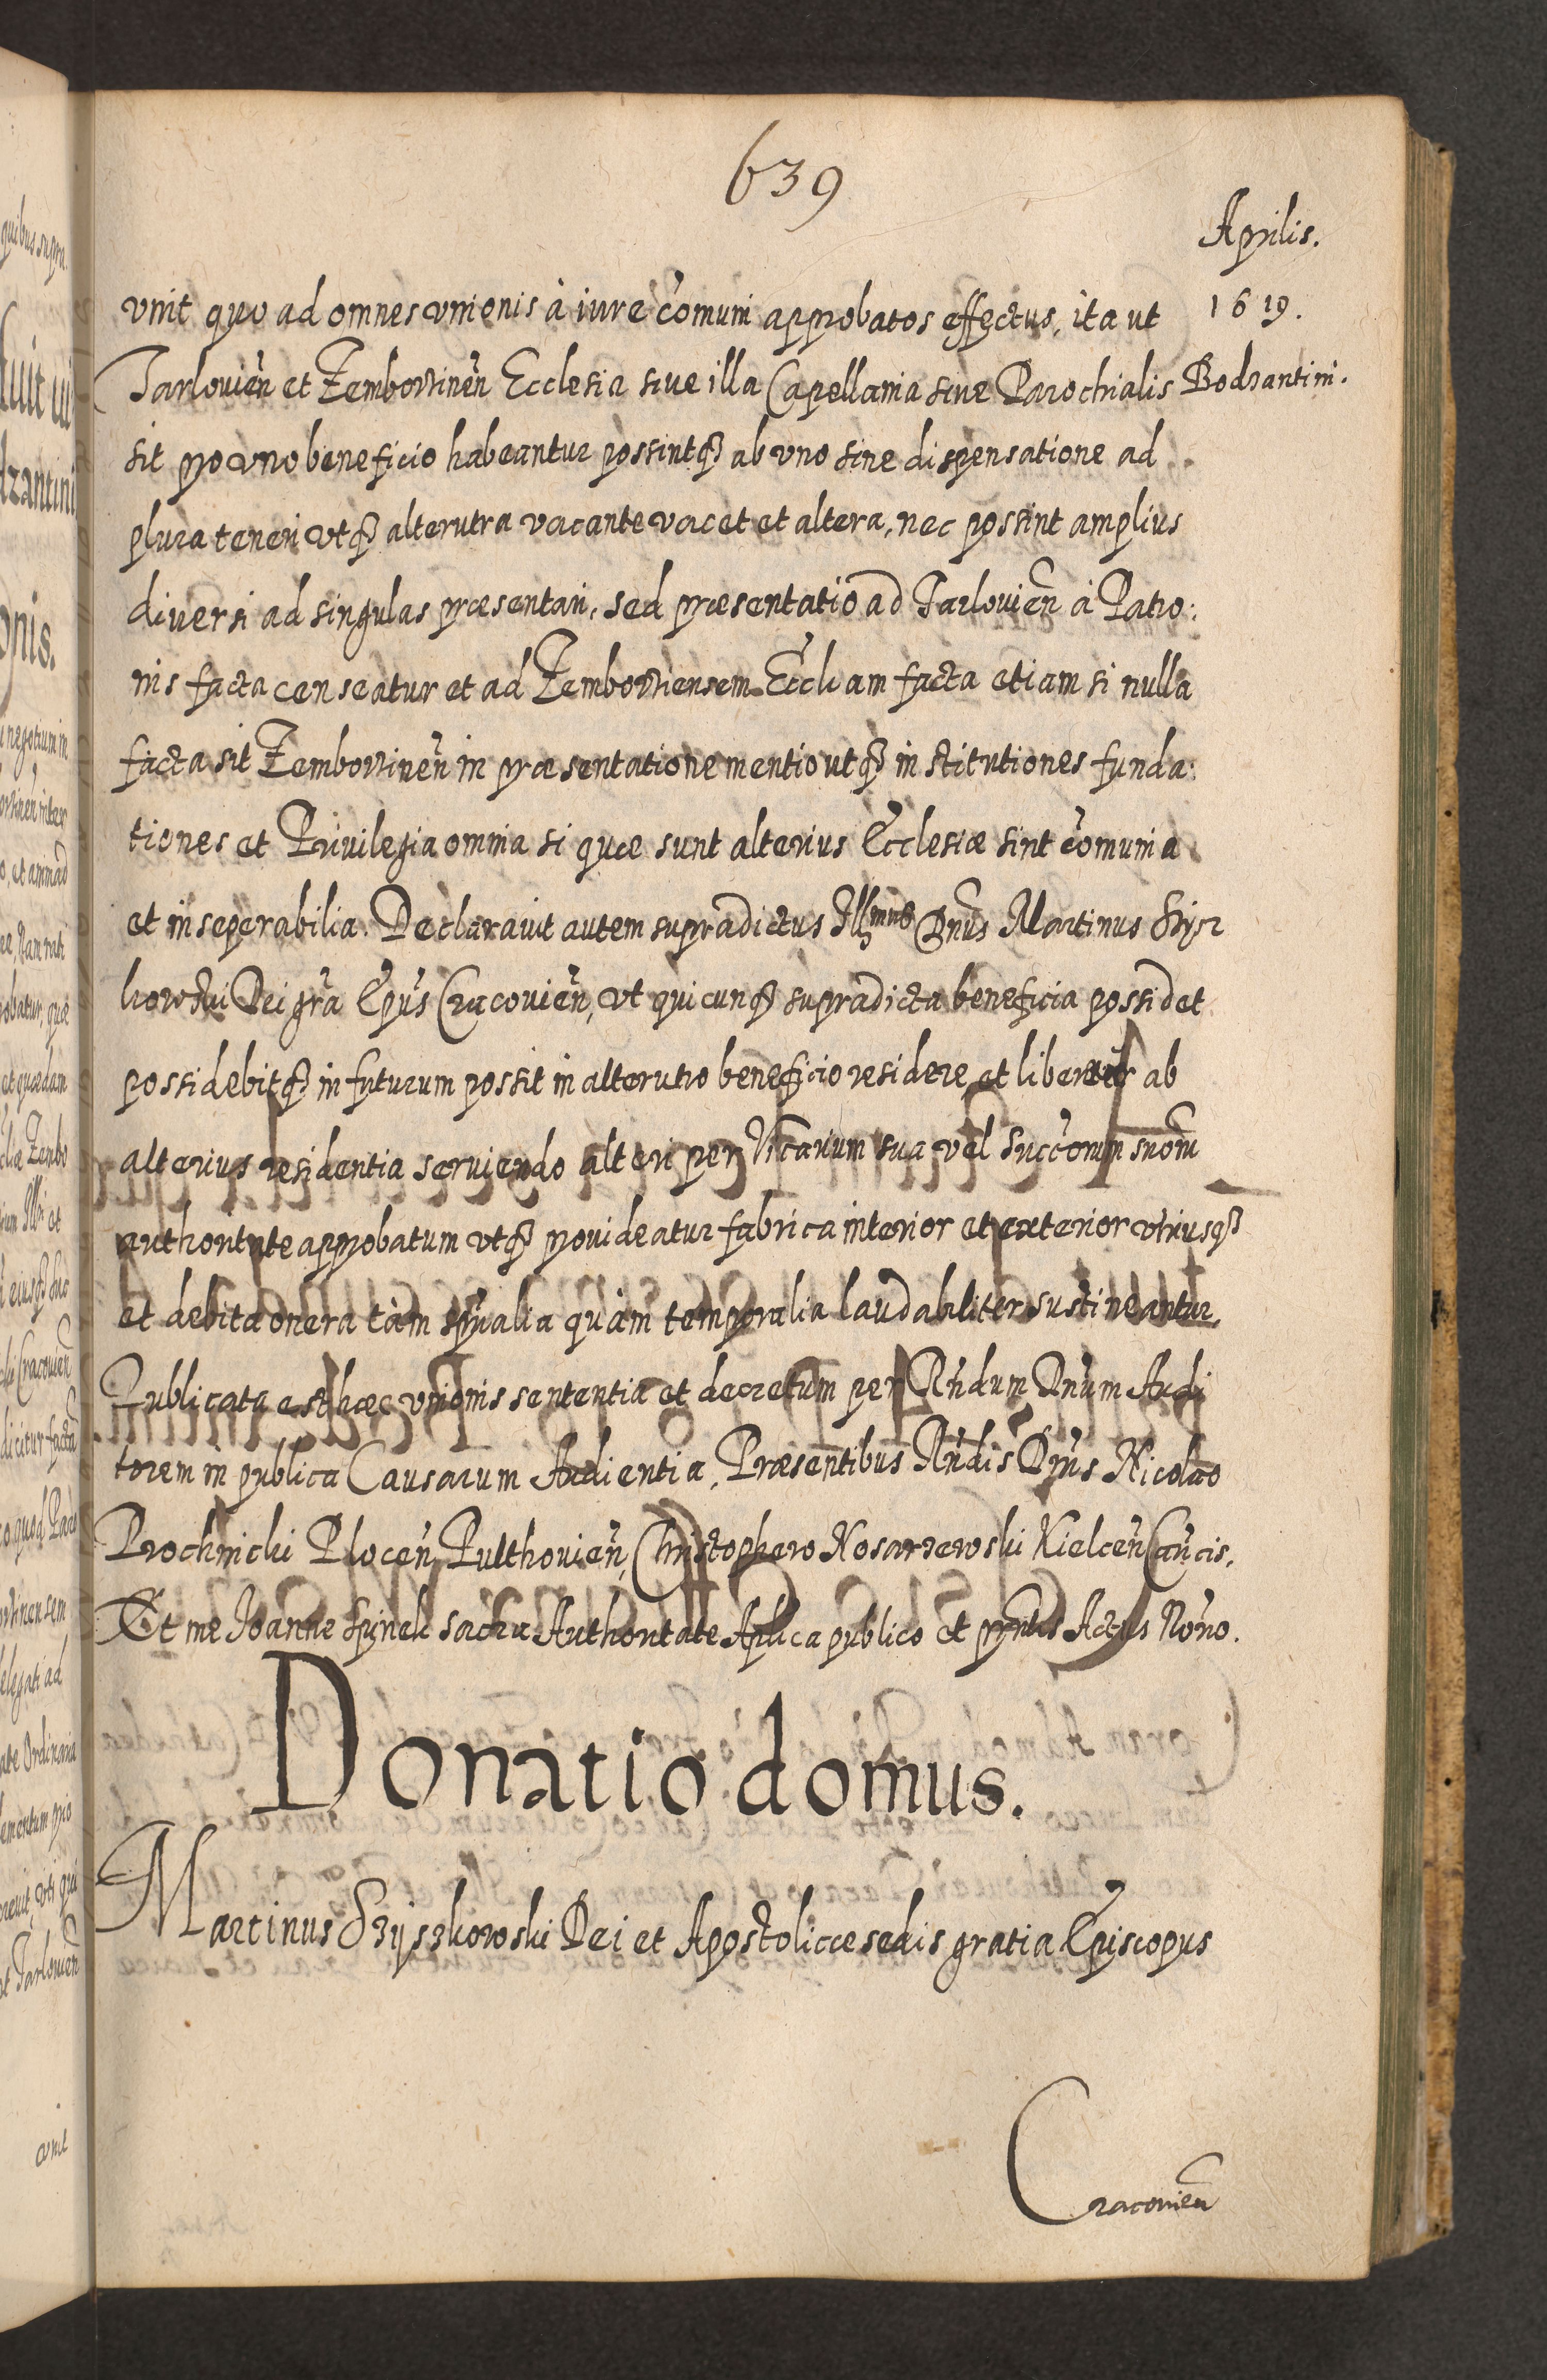 639
Aprilis.
1619.
Bodzantini.
vnit quo ad omnes vnionis à iure com̃uni approbatos effectus, ita ut
Tarlovieñ et Zemborzineñ Ecclesia siue illa Capellania siue Parochialis
sit pro vno beneficio habeantur possintqȝ ab vno sine dispensatione ad
plura teneri vtqȝ alterutra vacante vacet et altera, nec possint amplius
diversi ad singulas præsentari, sed præsentatio ad Tarlovieñ à Patro:
nis facta censeatur et ad Zemborziensem Eccliam facta etiam si nulla
facta sit Zemborzineñ in præsentatione mentio utqȝ institutiones funda:
tiones et Priuilegia omnia si quæ sunt alterius Ecclesiæ sint com̃unia
et inseperabilia. Declarauit autem supradictus Illmus Dnus Martinus Szysz
kowski Dei gr̃a Ep̃us Cracovieñ, vt quicunqȝ supradicta beneficia possidet
possidebitqȝ in futurum possit in alterutro beneficio residere et ab
alterius residentia seruiendo alteri per Vicarium sua vel Succorum suorũ
authoritate approbatum vtqȝ prouideatur fabrica interior et exterior vtriusqȝ
et debita onera tàm sp̃ualia quàm temporalia laudabiliter sustineantur.
Publicata est hæc vnionis sententia et decretum per Rñdum Dñum Audi
torem in publica Causarum Audientia, Præsentibus Rñdis Dñis Nicolao
Prochnicki Ploceñ Pulthovieñ, Christophero Kosarzewski Kielceñ Cañcis.
Et me Joanne Spinek sacra Authoritate Aplica publico et pñtis Actus Noṛio.
Donatio domus.
Martinus Szyszkowski Dei et Apostolicæ sedis gratia Episcopus
Cracovieñ